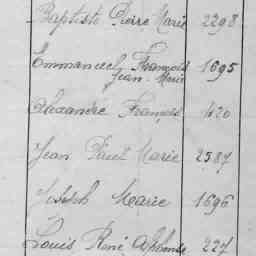 Baptiste Pierre Marie 2298
Emmanuel François
Jean Marie 1695
Alexandre François 1620
Jean Marie 2587
Joseph Marie 1696
Louis René Alphonse 227